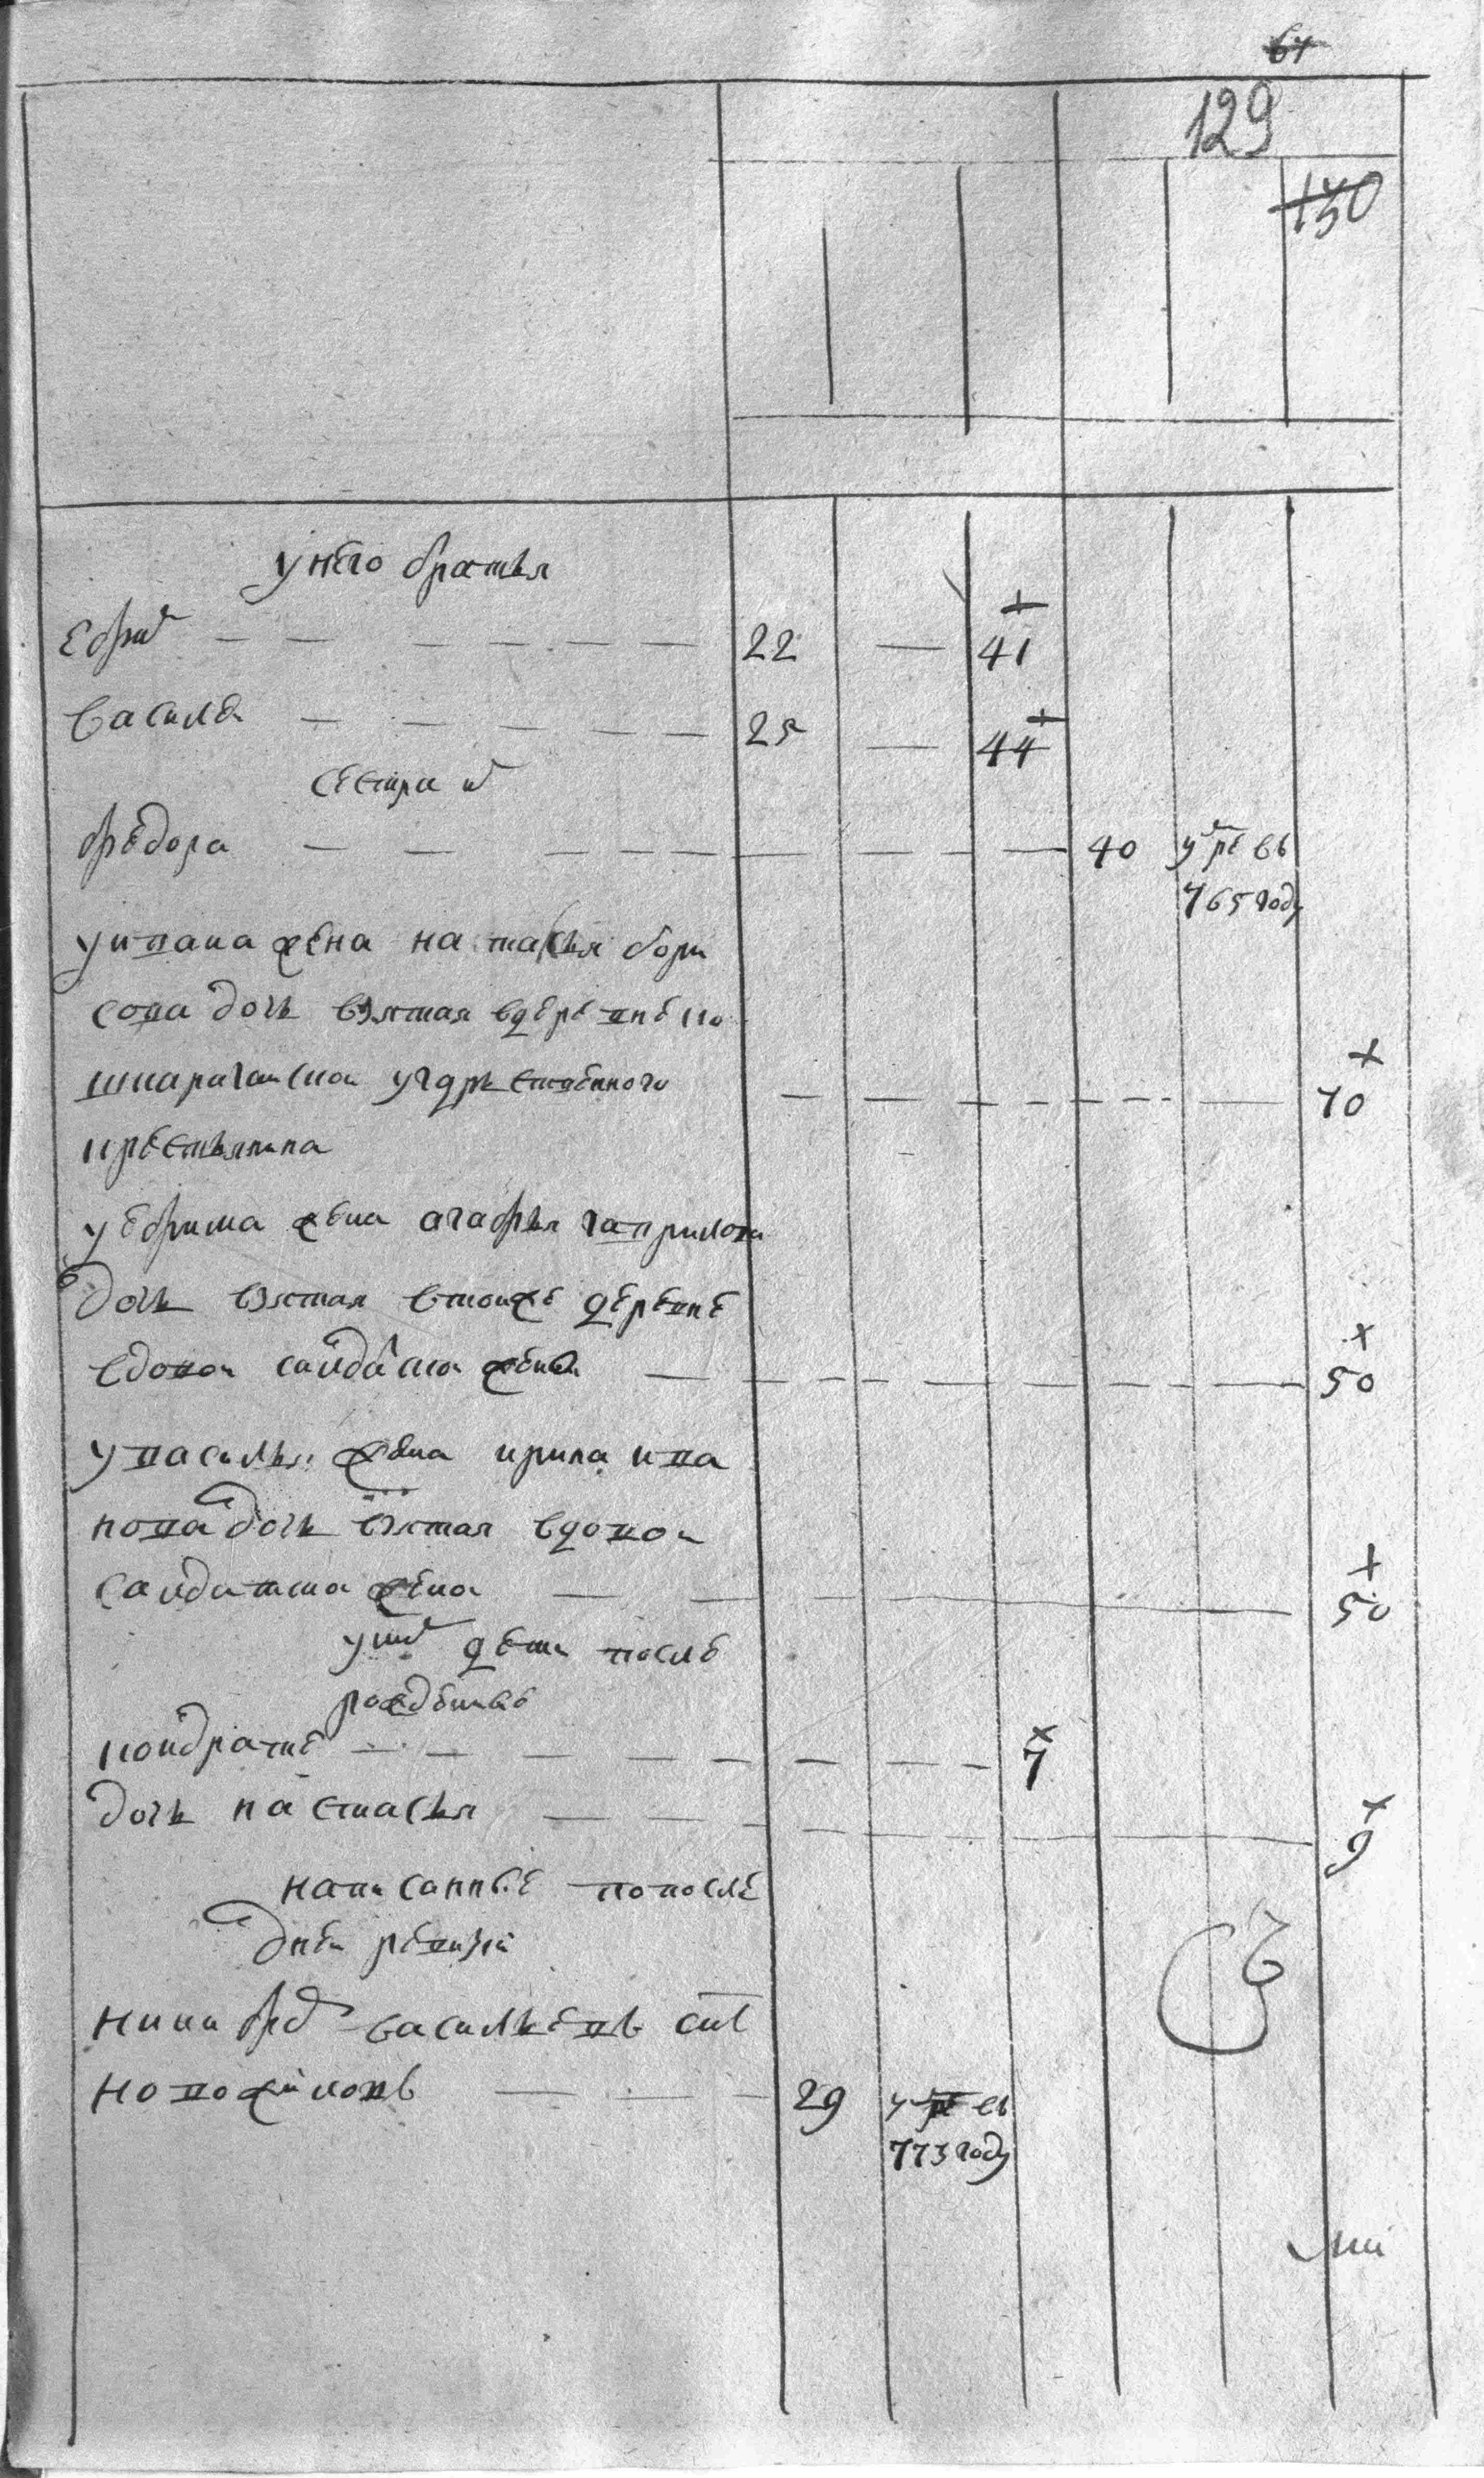 64
129
130
у него братья
Ефим — 22 — 41
василей — 25 — 44
сестра их
федора — 40 умре въ
765 году
у ивана жена настасья бори
сова дочь взятая в деревне ко
шкарагайской у гдрьственного
крестьянина — 70
у ефима жена агафья гаврилова
дочь взятая в тоиже деревне
вдовои салдацкои жены — 50
у василья жена ирина ива
нова дочь взятая вдовои
салдатская жена — 50
у них дети после
рожденные
кондратеи — 7
дочь настасья — 9
написанные по после
дней ревизии
никифор васильевъ снъ
новожиловъ — 29 умре въ
773 году